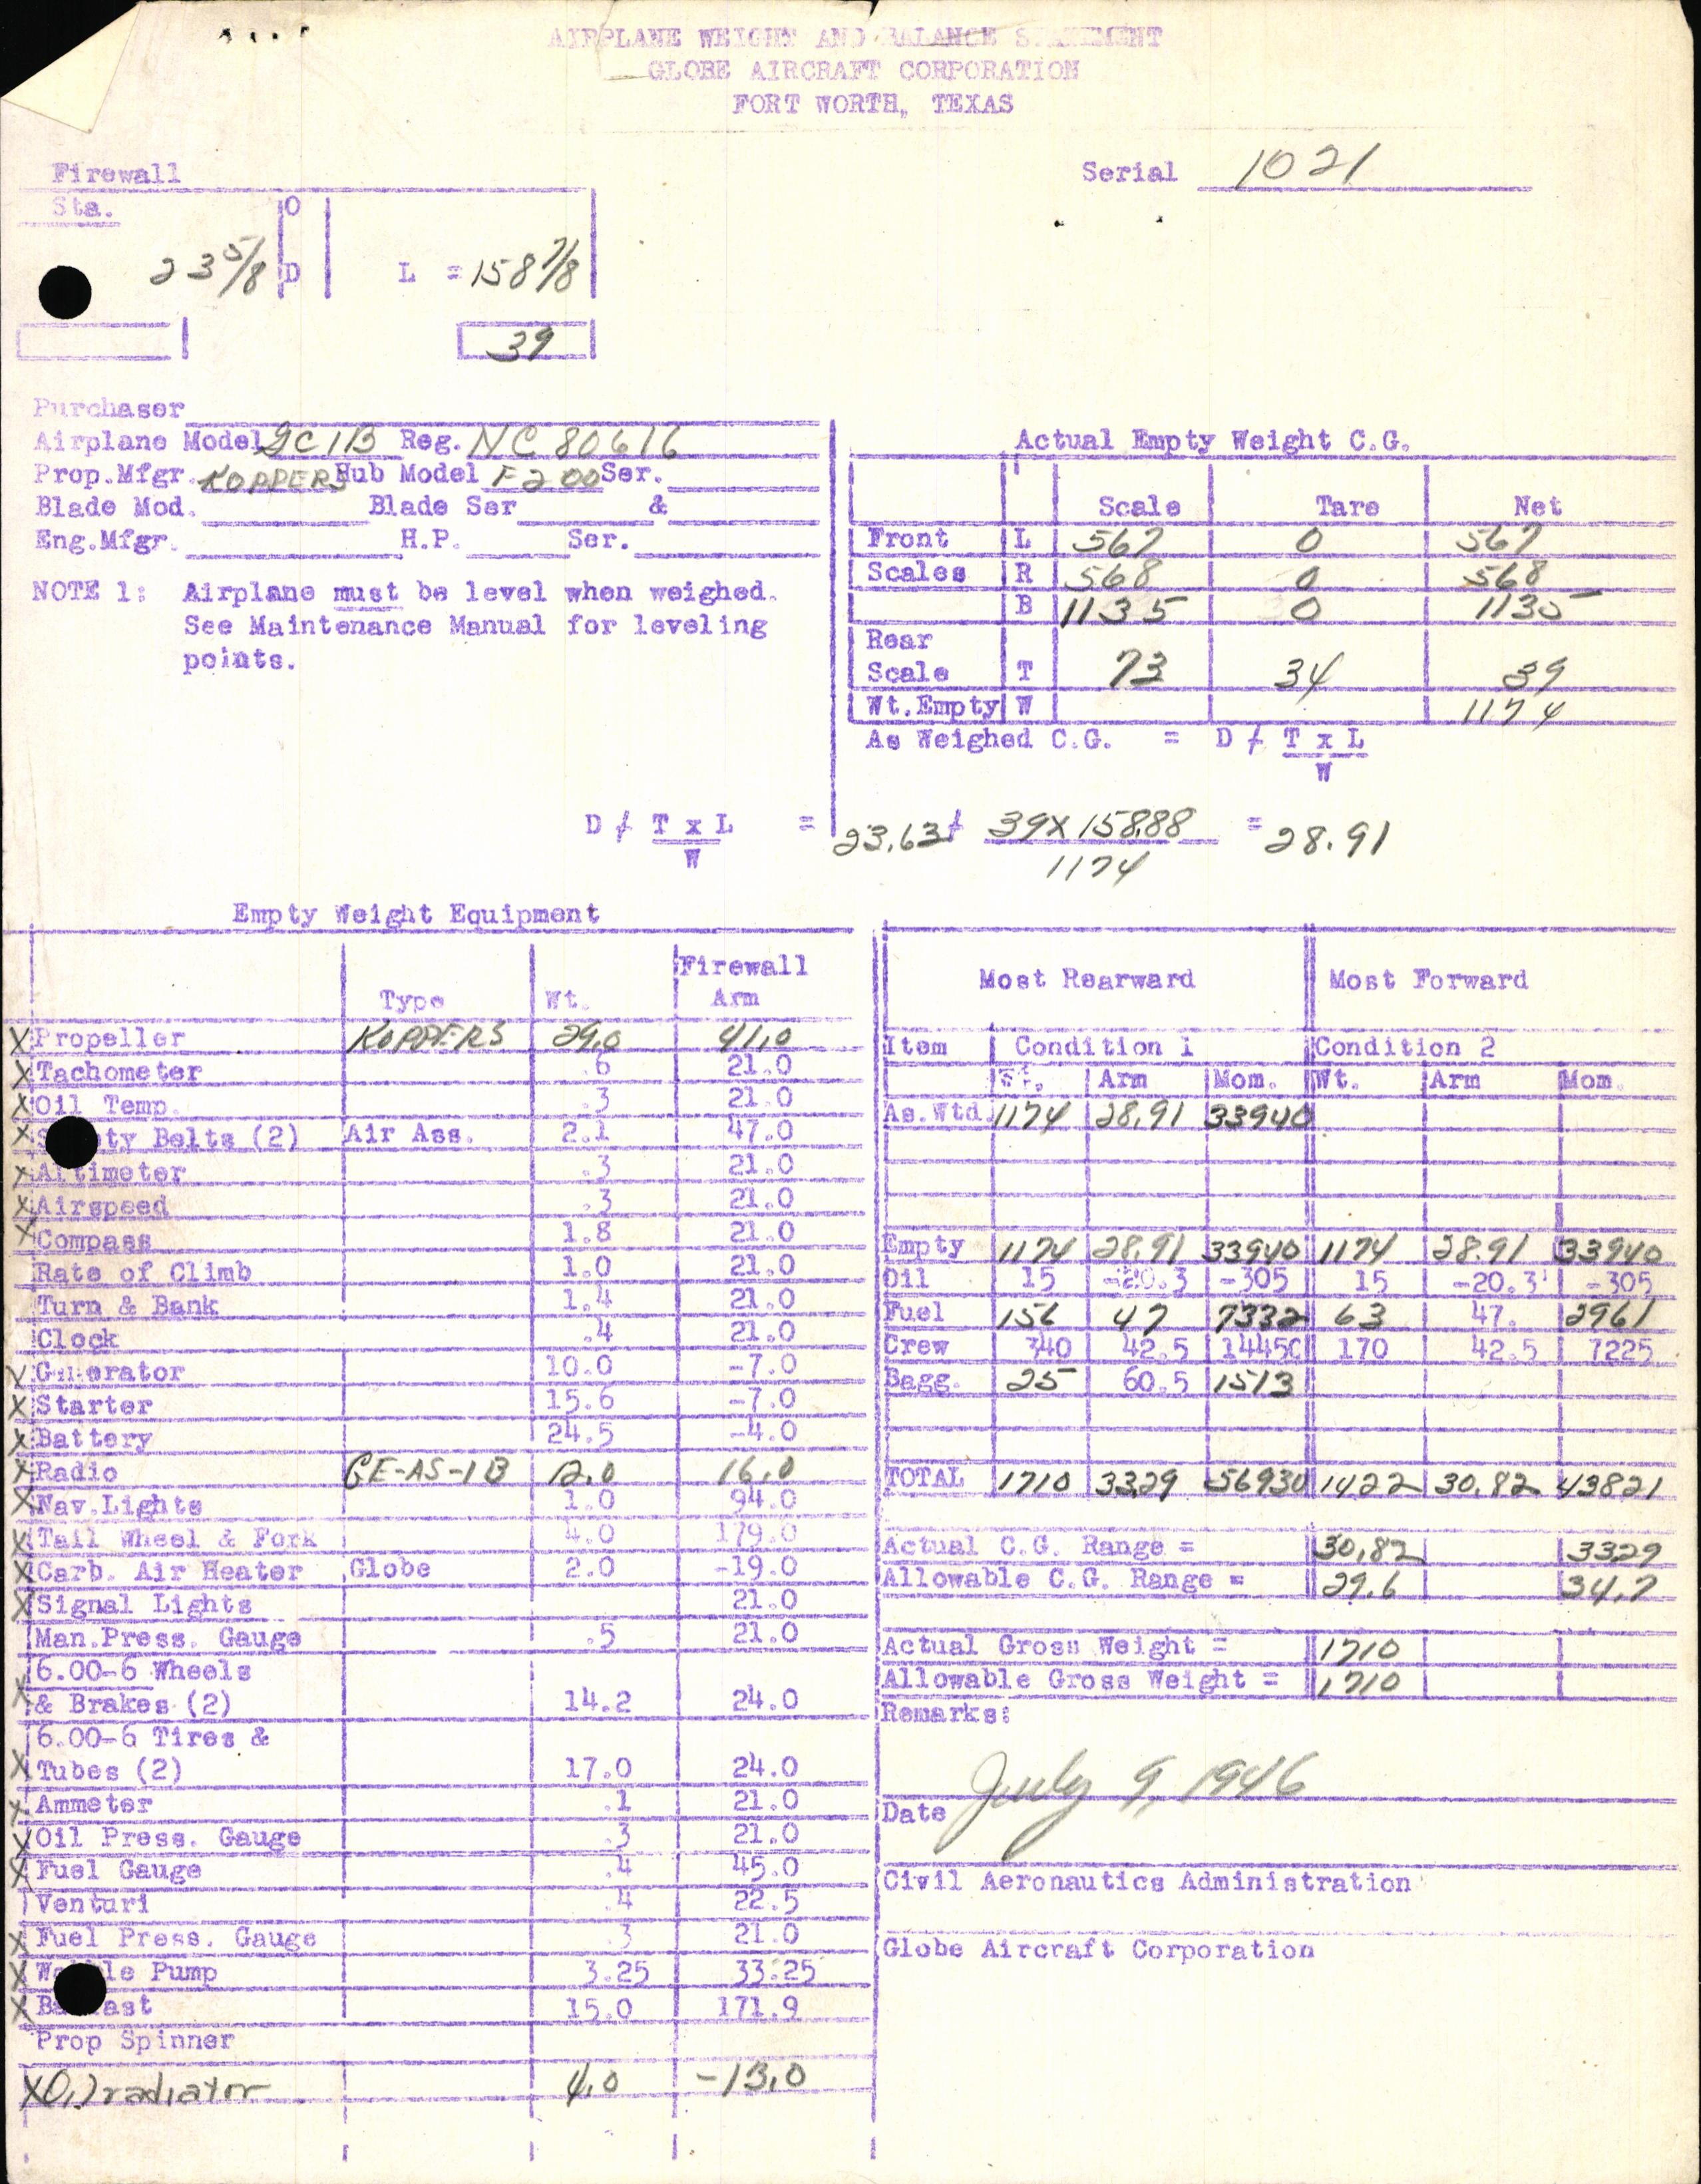 AIRPLANE WEIGHT AND BALANCE STATEMENT
GLOBE AIRCRAFT CORPORATION
FORT WORTH, TEXAS
Serial 1021
Firewall
Sta. O
23 5/8 D L = 158 7/8
39
Purchaser
Airplane Model GC1B Reg. NC 80616
Prop.Mfgr. KOPPERS Hub Model F200 Ser.
Blade Mod. Blade Ser &
Eng.Mfgr. H.P. Ser.
NOTE 1: Airplane must be level when weighed.
See Maintenance Manual for leveling
points.
Actual Empty Weight C.G.
Scale Tare Net
Front L 567 0 567
Scales R 568 0 568
B 1135 0 1135
Rear
Scale T 73 34 39
Wt.Empty W 1174
As Weighed C.G. = D + T x L
W
D + T x L = 23.63 + 39 x 158.88 = 28.91
W 1174
Empty Weight Equipment
Firewall
Type Wt. Arm
X Propeller KOPPERS 29.0 41.0
X Tachometer .6 21.0
X Oil Temp. .3 21.0
X S ty Belts (2) Air Ass. 2.1 47.0
X Altimeter .3 21.0
X Airspeed .3 21.0
X Compass 1.8 21.0
Rate of Climb 1.0 21.0
Turn & Bank 1.4 21.0
Clock .4 21.0
X Generator 10.0 -7.0
X Starter 15.6 -7.0
X Battery 24.5 -4.0
X Radio GE-AS-1B 12.0 16.0
X Nav.Lights 1.0 94.0
X Tail Wheel & Fork 4.0 179.0
X Carb. Air Heater Globe 2.0 -19.0
X Signal Lights 21.0
Man.Press. Gauge .5 21.0
6.00-6 Wheels
X & Brakes (2) 14.2 24.0
6.00-6 Tires &
X Tubes (2) 17.0 24.0
X Ammeter .1 21.0
X Oil Press. Gauge .3 21.0
X Fuel Gauge .4 45.0
Venturi .4 22.5
X Fuel Press. Gauge .3 21.0
X W le Pump 3.25 33.25
X B ast 15.0 171.9
Prop Spinner
X Oil radiator 4.0 -13.0
Most Rearward Most Forward
Item Condition 1 Condition 2
Wt. Arm Mom. Wt. Arm Mom.
As.Wtd. 1174 28.91 33940
Empty 1174 28.91 33940 1174 28.91 33940
Oil 15 -20.3 -305 15 -20.3 -305
Fuel 156 47 7332 63 47. 2961
Crew 340 42.5 14450 170 42.5 7225
Bagg. 25 60.5 1513
TOTAL 1710 33.29 56930 1422 30.82 43821
Actual C.G. Range = 30.82 33.29
Allowable C.G. Range = 29.6 34.7
Actual Gross Weight = 1710
Allowable Gross Weight = 1710
Remarks:
Date July 9, 1946
Civil Aeronautics Administration
Globe Aircraft Corporation